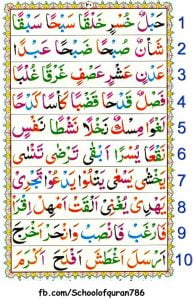 حَبْلٌ خُسْرٍ خَلْقًا سَبْحًا سَبْقًا 1
شَأْنٌ صُبْحًا ضَبْحًا عَبْدًا 2
عَدْنٍ عَشْرٍ عَصْفٍ غَرْقًا غُلْبًا 3
فَصْلٌ قَدْحًا قَضْبًا كَأْسًا كَدْحًا 4
لَغْوًا مِسْكٌ نَخْلًا نَشْطًا نَفْسٍ 5
نَقْعًا يُسْرًا اَبْقٰى تَرْضٰى تَنْسٰى 6
يَخْشٰى يَسْعٰى يَتْلُوْا يَدْعُوْا تَجْرِىْ 7
يَهْدِىْ يُغْنِىْ اَلْقَتْ اَمْهِلْ اِقْرَاْ 8
فَارْغَبْ فَانْصَبْ وَانْحَرْ اَخْرَجَ 9
اَرْسَلَ اَغْطَشَ اَفْلَحَ اَكْرَمَ 10
fb.com/Schoolofquran786